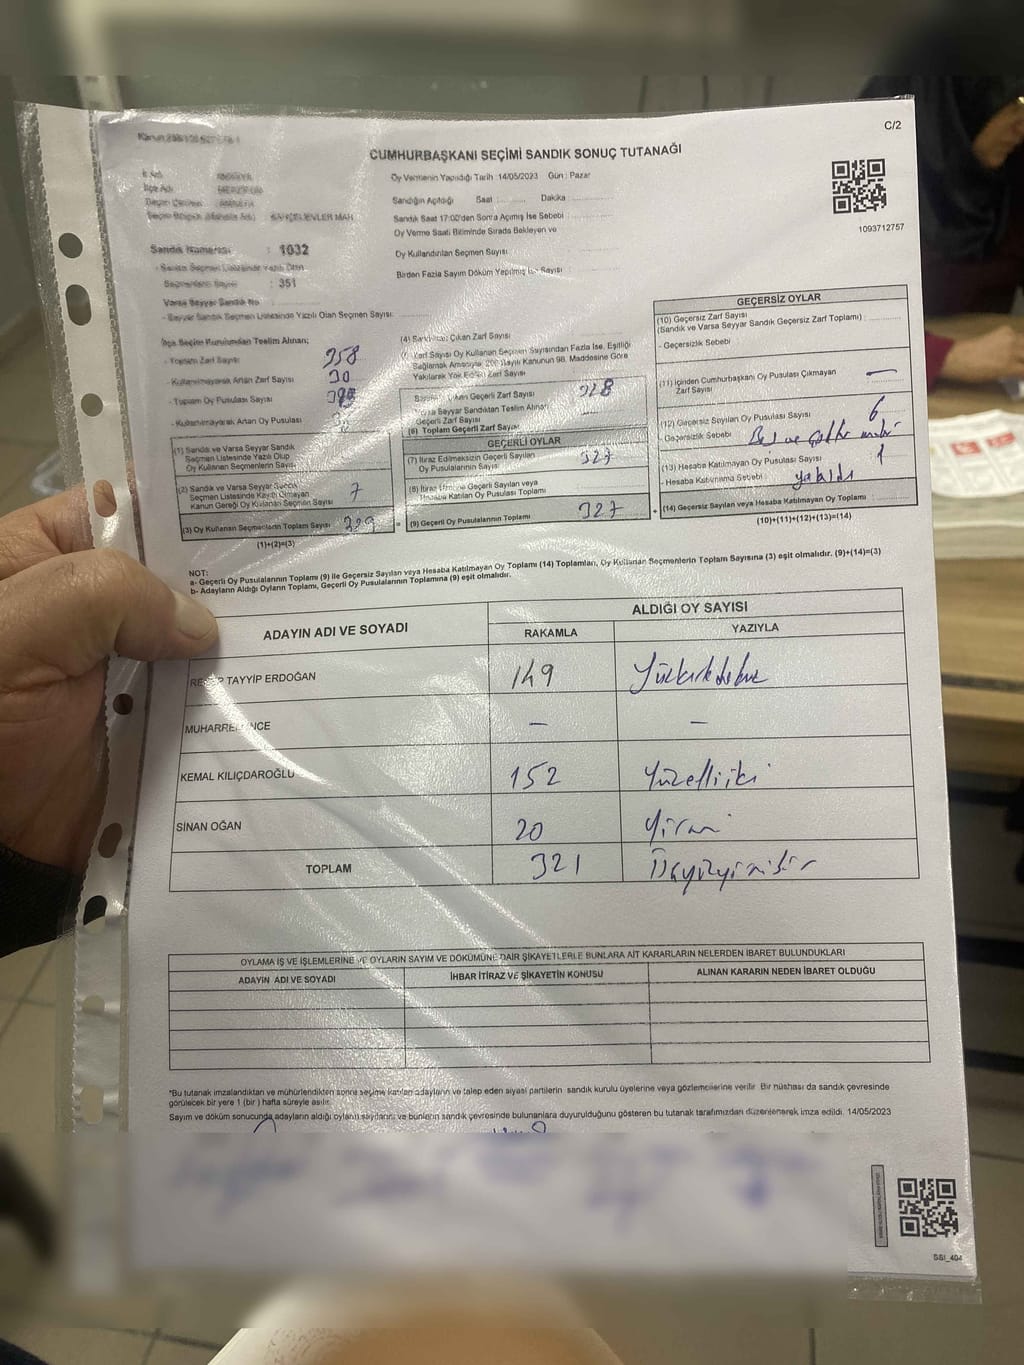 C/2
CUMHURBAŞKANI SEÇİMİ SANDIK SONUÇ TUTANAĞI
Oy Vermenin Yapıldığı Tarih :14/05/2023 Gün : Pazar
Sandığın Açıldığı Saat : Dakika
Sandık Saat 17:00'den Sonra Açımış İse Sebebi
Oy Verme Saati Bitiminde Sırada Bekleyen ve
Oy Kullandırılan Seçmen Sayısı
Birden Fazla Sayım Döküm Yapılmış İse Sayısı
1093712757
İlçe Adı
BAHÇELİEVLER MAH
Sandık Numarası : 1032
- Sandık Seçmen Listesinde Yazılı Olan
Seçmenlerin Sayısı : 351
Varsa Seyyar Sandık No
- Seyyar Sandık Seçmen Listesinde Yazılı Olan Seçmen Sayısı:
İlçe Seçim Kurulundan Teslim Alınan;
- Toplam Zarf Sayısı 358
- Kullanılmayarak Artan Zarf Sayısı 30
- Toplam Oy Pusulası Sayısı
- Kullanılmayarak Artan Oy Pusulası
(1) Sandık ve Varsa Seyyar Sandık
Seçmen Listesinde Yazılı Olup
Oy Kullanan Seçmenlerin Sayısı
(2) Sandık ve Varsa Seyyar Sandık
Seçmen Listesinde Kayıtlı Olmayan
Kanun Gereği Oy Kullanan Seçmen Sayısı 7
(3) Oy Kullanan Seçmenlerin Toplam Sayısı
(1)+(2)=(3)
(4) Sandıktan Çıkan Zarf Sayısı
Zarf Sayısı Oy Kullanan Seçmen Sayısından Fazla İse, Eşitliği
Sağlamak Amacıyla, 298 Sayılı Kanunun 98. Maddesine Göre
Yakılarak Yok Edilen Zarf Sayısı
Çıkan Geçerli Zarf Sayısı 328
Varsa Seyyar Sandıktan Teslim Alınan
Geçerli Zarf Sayısı
(6) Toplam Geçerli Zarf Sayısı
GEÇERLİ OYLAR
(7) İtiraz Edilmeksizin Geçerli Sayılan
Oy Pusulalarının Sayısı 327
(8) İtiraz Üzerine Geçerli Sayılan veya
Hesaba Katılan Oy Pusulası Toplamı
(9) Geçerli Oy Pusulalarının Toplamı 327
GEÇERSİZ OYLAR
(10) Geçersiz Zarf Sayısı
(Sandık ve Varsa Seyyar Sandık Geçersiz Zarf Toplamı) :
- Geçersizlik Sebebi
(11) İçinden Cumhurbaşkanı Oy Pusulası Çıkmayan
Zarf Sayısı —
(12) Geçersiz Sayılan Oy Pusulası Sayısı 6
- Geçersizlik Sebebi
(13) Hesaba Katılmayan Oy Pusulası Sayısı 1
- Hesaba Katılmama Sebebi yakıldı
(14) Geçersiz Sayılan veya Hesaba Katılmayan Oy Toplamı
(10)+(11)+(12)+(13)=(14)
NOT:
a- Geçerli Oy Pusulalarının Toplamı (9) ile Geçersiz Sayılan veya Hesaba Katılmayan Oy Toplamı (14) Toplamları, Oy Kullanan Seçmenlerin Toplam Sayısına (3) eşit olmalıdır. (9)+(14)=(3)
b- Adayların Aldığı Oyların Toplamı, Geçerli Oy Pusulalarının Toplamına (9) eşit olmalıdır.
ADAYIN ADI VE SOYADI ALDIĞI OY SAYISI
RAKAMLA YAZIYLA
RECEP TAYYİP ERDOĞAN 149 Yüzkırkdokuz
MUHARREM İNCE — —
KEMAL KILIÇDAROĞLU 152 Yüzelliiki
SİNAN OĞAN 20 Yirmi
TOPLAM 321 Üçyüzyirmibir
OYLAMA İŞ VE İŞLEMLERİNE VE OYLARIN SAYIM VE DÖKÜMÜNE DAİR ŞİKAYETLERLE BUNLARA AİT KARARLARIN NELERDEN İBARET BULUNDUKLARI
ADAYIN ADI VE SOYADI İHBAR İTİRAZ VE ŞİKAYETİN KONUSU ALINAN KARARIN NEDEN İBARET OLDUĞU
*Bu tutanak imzalandıktan ve mühürlendikten sonra seçime katılan adayların ve talep eden siyasi partilerin sandık kurulu üyelerine veya gözlemcilerine verilir. Bir nüshası da sandık çevresinde
görülecek bir yere 1 (bir ) hafta süreyle asılır.
Sayım ve döküm sonucunda adayların aldığı oyların sayılarını ve bunların sandık çevresinde bulunanlara duyurulduğunu gösteren bu tutanak tarafımızdan düzenlenerek imza edildi. 14/05/2023
SSI_404